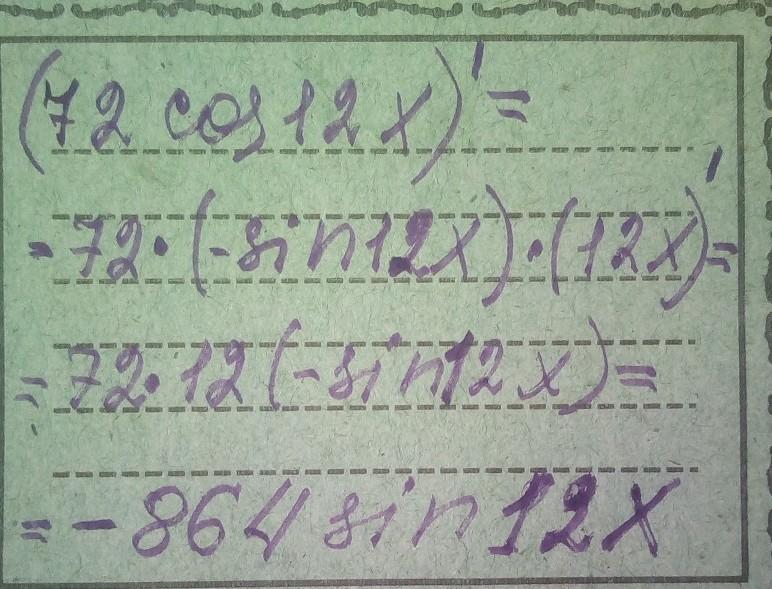 (72 cos 12x)' =
= 72·(-sin12x)·(12x)' =
= 72·12(-sin12x) =
= -864 sin 12x